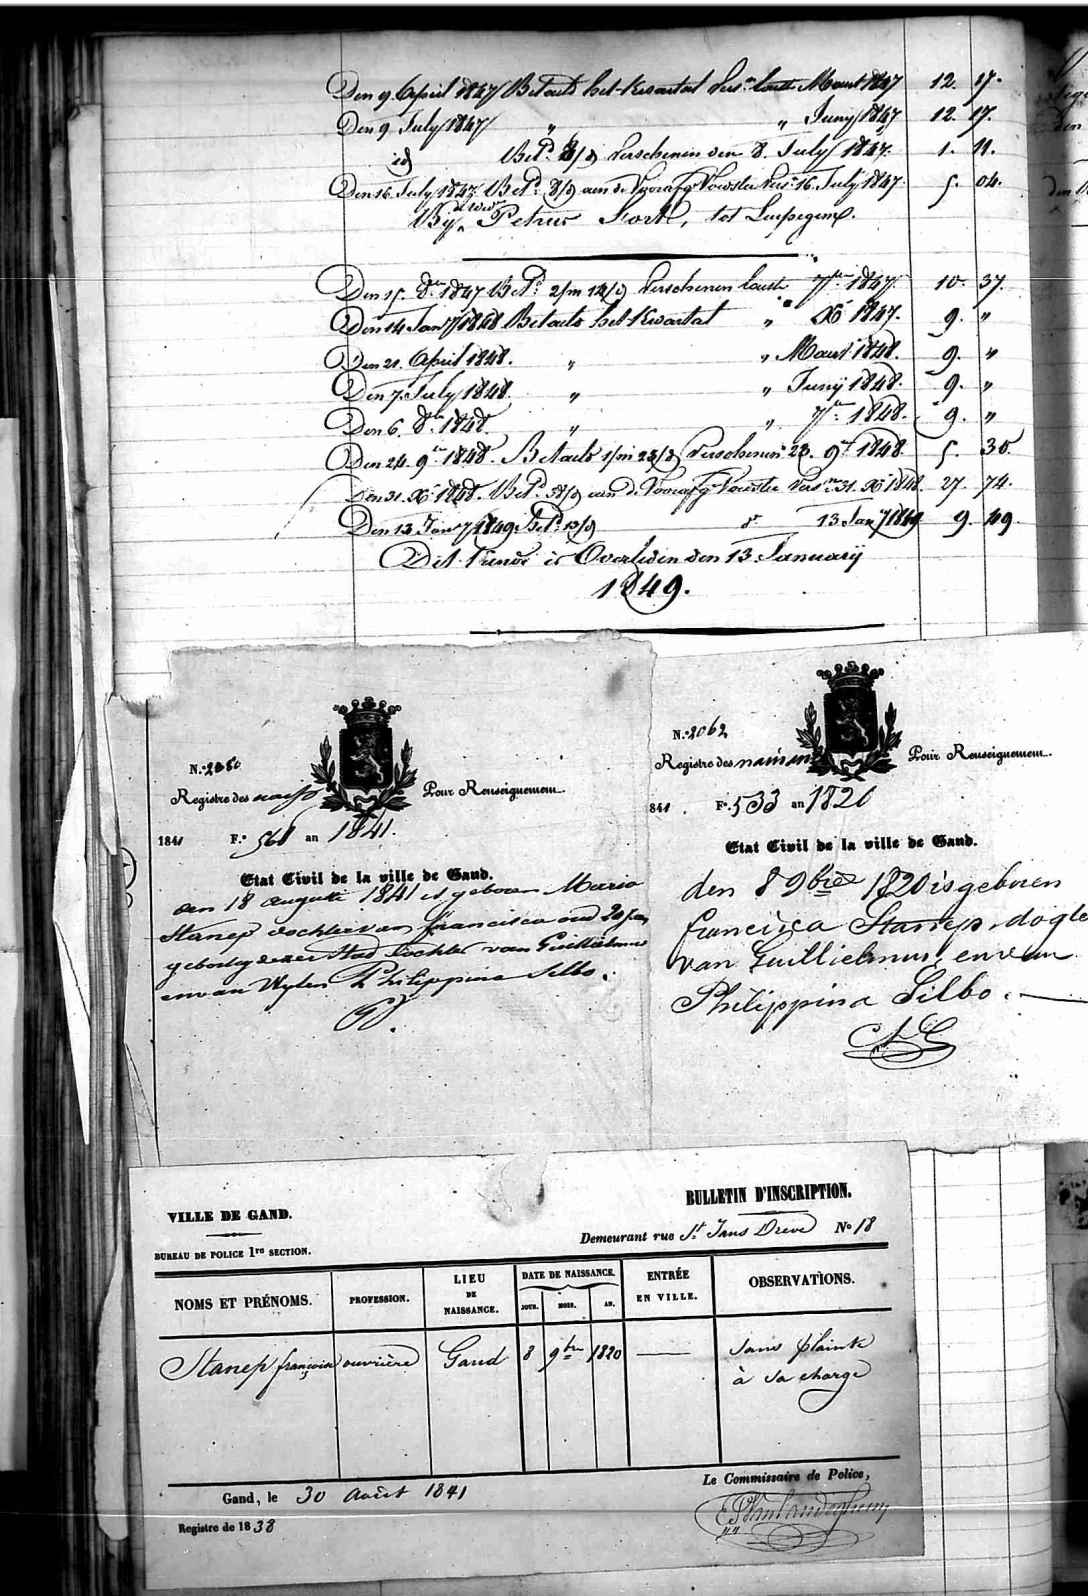 Den 9 April 1847 Betaald het kwartal vers.n laatst Maart 1847 12. 17.
Den 9 July 1847 " " Juny 1847 12. 17.
id Bet.d 8/d verschenen den 8 July 1847. 1. 11.
Den 16 July 1847. Bet.d 8/d aan de Voorafg. Voedster vers.n 16 July 1847. 5. 04.
By de wed.e Petrus Fort, tot
Den 15 8.ber 1847 Bet.d 2/m 14/d verschenen laatst 7.ber 1847. 10. 37.
Den 14 Jan.y 1848 Betaald het kwartal " X.r 1847. 9. "
Den 21 April 1848. " " Maart 1848. 9. "
Den 7 July 1848. " " Juny 1848. 9. "
Den 6 8.ber 1848. " " 7.ber 1848. 9. "
Den 24 9.br 1848. Betaald 1/m 23/d verschenen 23 9.br 1848. 5. 30.
Den 31 X.r 1848. Bet.d 38/d aan de Voorafg. Voedster vers.n 31 X.r 1848. 27. 74.
Den 13 Jan.y 1849 Bet.d 13/d d.o 13 Jan.y 1849 9. 49.
Dit kind is Overleden den 13 January
1849.
N.o 2060
Registre des naiss
Pour Renseignement
1841 F.o 561 an 1841.
Etat Civil de la ville de Gand.
den 18 auguste 1841 is geboren Maria
Stanep dochter van francisca oud 20 jaer
geboortig dezer stad dochter van Guillielmus
en van wylen Philippina Silbo.
N.o 2062
Registre des naissan
Pour Renseignement
841 . F.o 533 an 1820
Etat Civil de la ville de Gand.
den 8 9bre 1820 is geboren
francisca Stanep, dogte
van Guillielmus, en van
Philippina Silbo.
VILLE DE GAND.
BUREAU DE POLICE 1re SECTION.
BULLETIN D'INSCRIPTION.
Demeurant rue St Jans Dreve No 18
NOMS ET PRÉNOMS. PROFESSION. LIEU DE NAISSANCE. DATE DE NAISSANCE. JOUR. MOIS. AN. ENTRÉE EN VILLE. OBSERVATIONS.
Stanep françoise ouvrière Gand 8 9bre 1820 sans plainte
à sa charge
Gand, le 30 Août 1841
Le Commissaire de Police,
Registre de 1838